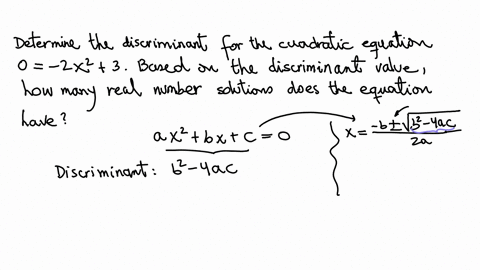 Determine the discriminant for the cuadratic equation
0 = -2x² + 3. Based on the discriminant value,
how many real number solutions does the equation
have?
ax² + bx + c = 0
x = (-b ± √(b² - 4ac)) / 2a
Discriminant: b² - 4ac